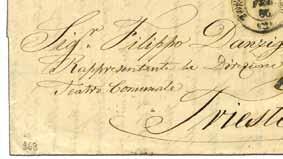 Sigr. Filippo Danzig
Rappresentante la Direzione
Teatro Comunale
Trieste
868